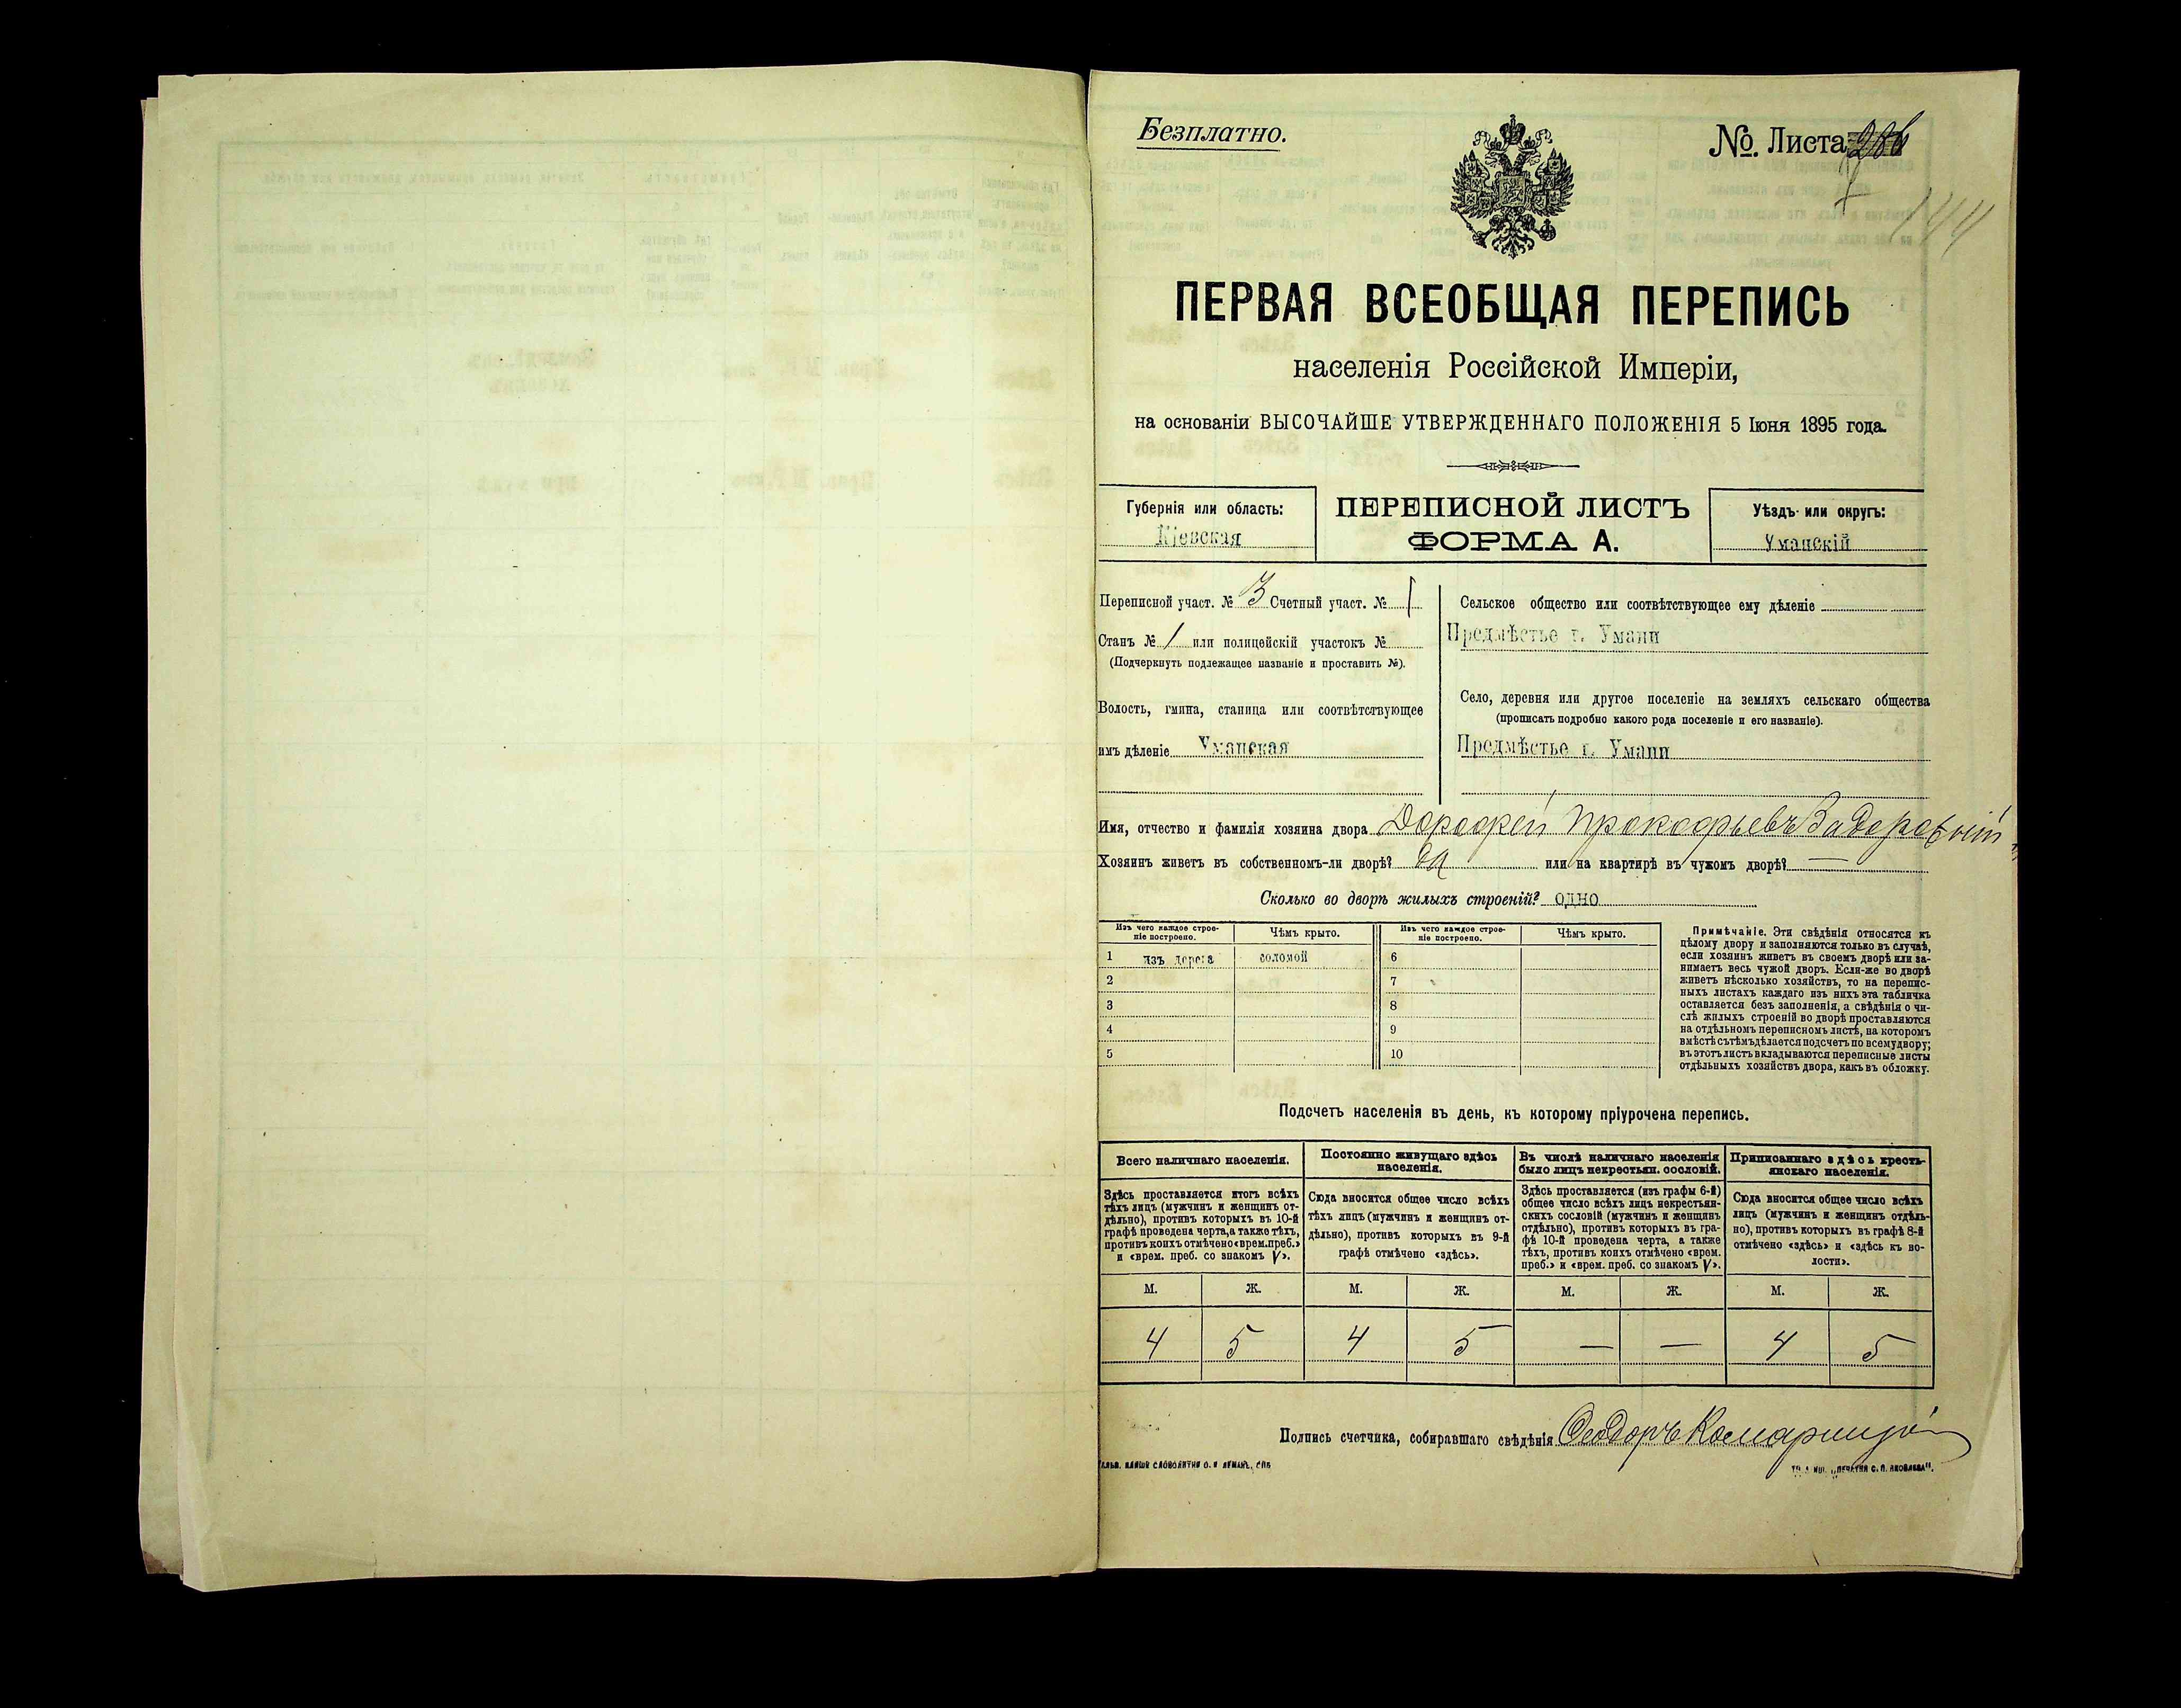 Безплатно.
№. Листа
144
ПЕРВАЯ ВСЕОБЩАЯ ПЕРЕПИСЬ
населенія Россійской Имперіи,
на основаніи ВЫСОЧАЙШЕ УТВЕРЖДЕННАГО ПОЛОЖЕНІЯ 5 Іюня 1895 года.
Губернія или область:
Кіевская
ПЕРЕПИСНОЙ ЛИСТЪ
ФОРМА А.
Уѣздъ или округъ:
Уманскій
Переписной участ. № 3 Счетный участ. № 1
Станъ № 1 или полицейскій участокъ №
(Подчеркнуть подлежащее названіе и проставить №).
Волость, гмина, станица или соотвѣтствующее
имъ дѣленіе Уманская
Сельское общество или соотвѣтствующее ему дѣленіе
Предмѣстье г. Умани
Село, деревня или другое поселеніе на земляхъ сельскаго общества
(прописать подробно какого рода поселеніе и его названіе).
Предмѣстье г. Умани
Имя, отчество и фамилія хозяина двора Дорофей Прокофьевъ
Хозяинъ живетъ въ собственномъ-ли дворѣ? да или на квартирѣ въ чужомъ дворѣ? —
Сколько во дворѣ жилыхъ строеній? одно
Изъ чего каждое строе-
ніе построено.
Чѣмъ крыто.
Изъ чего каждое строе-
ніе построено.
Чѣмъ крыто.
1 изъ дерева соломой 6
2 7
3 8
4 9
5 10
Примѣчаніе. Эти свѣдѣнія относятся къ
цѣлому двору и заполняются только въ случаѣ,
если хозяинъ живетъ въ своемъ дворѣ или за-
нимаетъ весь чужой дворъ. Если-же во дворѣ
живетъ нѣсколько хозяйствъ, то на перепис-
ныхъ листахъ каждаго изъ нихъ эта табличка
оставляется безъ заполненія, а свѣдѣнія о чи-
слѣ жилыхъ строеній во дворѣ проставляются
на отдѣльномъ переписномъ листѣ, на которомъ
вмѣстѣ съ тѣмъ дѣлается подсчетъ по всему двору;
въ этотъ листъ вкладываются переписные листы
отдѣльныхъ хозяйствъ двора, какъ въ обложку.
Подсчетъ населенія въ день, къ которому пріурочена перепись.
Всего наличнаго населенія.
Здѣсь проставляется итогъ всѣхъ
тѣхъ лицъ (мужчинъ и женщинъ от-
дѣльно), противъ которыхъ въ 10-й
графѣ проведена черта, а также тѣхъ,
противъ коихъ отмѣчено «врем. преб.»
и «врем. преб. со знакомъ V».
Постоянно живущаго здѣсь
населенія.
Сюда вносится общее число всѣхъ
тѣхъ лицъ (мужчинъ и женщинъ от-
дѣльно), противъ которыхъ въ 9-й
графѣ отмѣчено «здѣсь».
Въ числѣ наличнаго населенія
было лицъ некрестьян. сословій.
Здѣсь проставляется (изъ графы 6-й)
общее число всѣхъ лицъ некрестьян-
скихъ сословій (мужчинъ и женщинъ
отдѣльно), противъ которыхъ въ гра-
фѣ 10-й проведена черта, а также
тѣхъ, противъ коихъ отмѣчено «врем.
преб.» и «врем. преб. со знакомъ V».
Приписаннаго здѣсь кресть-
янскаго населенія.
Сюда вносится общее число всѣхъ
лицъ (мужчинъ и женщинъ отдѣль-
но), противъ которыхъ въ графѣ 8-й
отмѣчено «здѣсь» и «здѣсь къ во-
лости».
М. Ж. М. Ж. М. Ж. М. Ж.
4 5 4 5 — — 4 5
Подпись счетчика, собиравшаго свѣдѣнія Ѳеодоръ Комарницкій